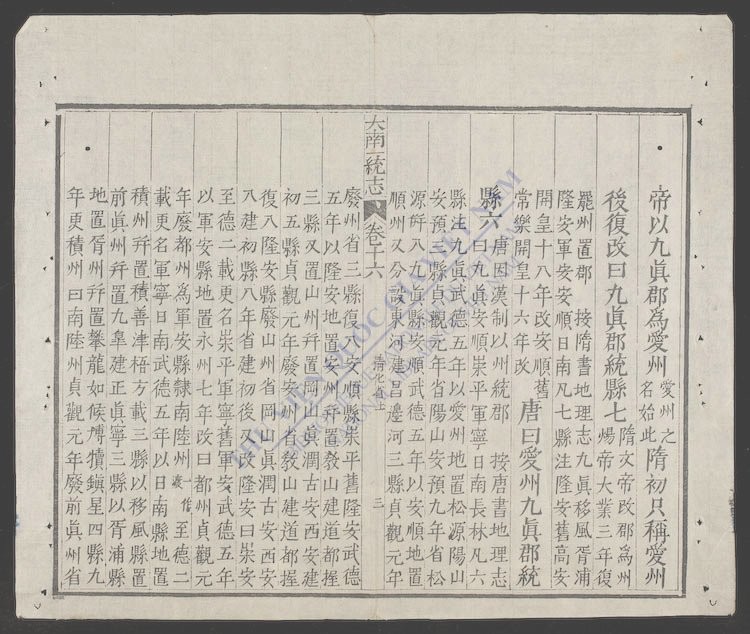 帝以九眞郡爲愛州愛州之
名始此隋初只稱愛州
後復改曰九眞郡統縣七隋文帝改郡爲州
煬帝大業三年復
罷州置郡 按隋書地理志九眞移風胥浦
隆安軍安安順日南凡七縣注隆安舊高安
開皇十八年改安順舊
常樂開皇十六年改唐曰愛州九眞郡統
縣六唐因漢制以州統郡 按唐書地理志
曰九眞安順崇平軍寧日南長林凡六
縣注九眞武德五年以愛州地置松源陽山
安預三縣貞觀元年省陽山安預九年省松
源幷八九眞縣安順武德五年以安順地置
順州又分設東河建昌邊河三縣貞觀元年
大南一統志 卷十六 清化省上 三
廢州省三縣復入安順縣崇平舊隆安武德
五年以隆安地置安州幷置敎山建道都握
三縣又置山州幷置岡山眞潤古安西安建
初五縣貞觀元年廢安州省敎山建道都握
復八隆安縣廢山州省岡山眞潤古安西安
八建初縣八年省建初後又改隆安曰崇安
至德二載更名崇平軍寧舊軍安武德五年
以軍安縣地置永州七年改曰都州貞觀元
年廢都州爲軍安縣隸南陸州一作至德二
載更名軍寧日南武德五年以日南縣地置
積州幷置積善津梧方載三縣以移風縣置
前眞州幷置九臯建正眞寧三縣以胥浦縣
地置胥州幷置攀龍如侯愽犢鎭星四縣九
年更積州曰南陸州貞觀元年廢前眞州省
THƯ VIỆN QUỐC GIA VIỆT NAM